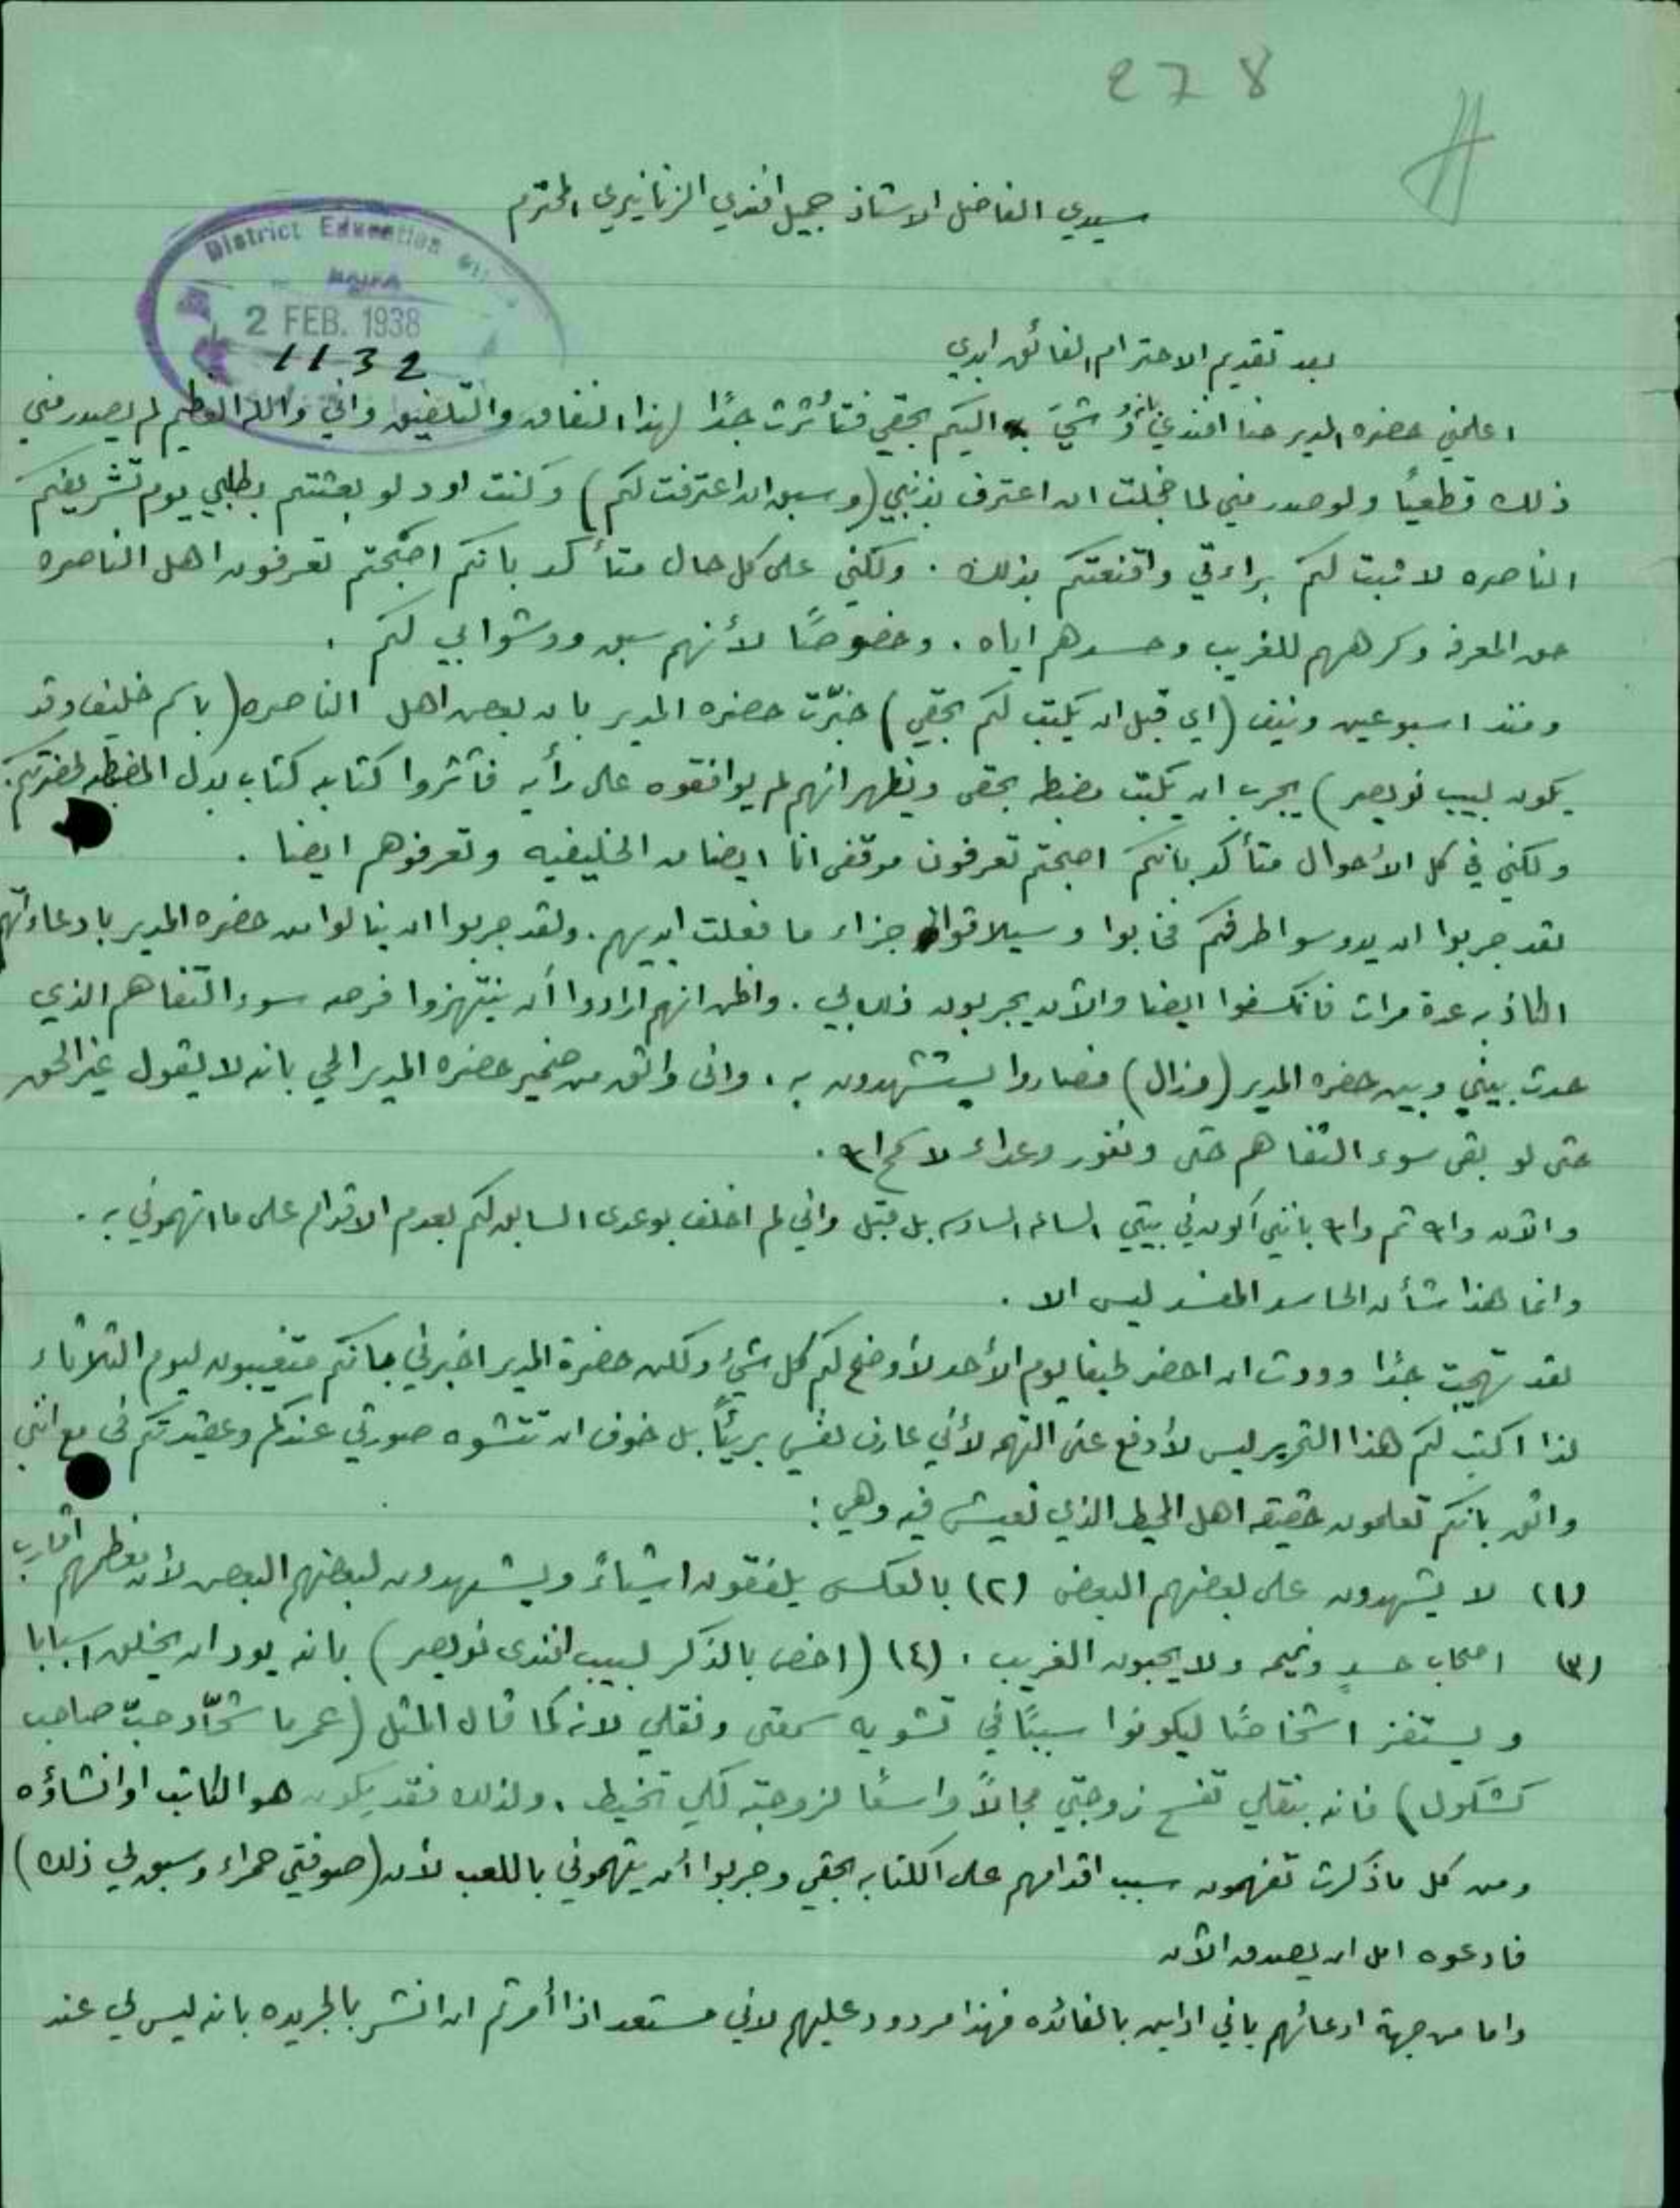 278
سيدي الفاضل الاستاذ جميل افندي الزنانيري المحترم
District Education
HAIFA
2 FEB. 1938
1132
بعد تقديم الاحترام الفائق ابدي
اعلمني حضره المدير حنا افندي بانه وُشيَ اليكم بحقي فتأثرت جدًا لهذا النفاق والتلفيق واني والله العظيم لم يصدر مني
ذلك قطعيًا ولو صدر مني لما خجلت ان اعترف بذنبي (وسبق ان اعترفت لكم) وكنت اود لو بعثتم بطلبي يوم تشريفكم
الناصره لاثبت لكم براءتي واقنعتكم بذلك . ولكني على كل حال متأكد بانكم اصبحتم تعرفون اهل الناصره
حق المعرفه وكرههم للغريب وحسدهم اياه . وخصوصًا لأنهم سبق ووشوا بي لكم .
ومنذ اسبوعين ونيف (اي قبل ان يكتب لكم بحقي) خبّرت حضره المدير بان بعض اهل الناصره (باسم خليف وقد
يكون لبيب نويصر) يجرب ان يكتب مضبطه بحقي ويظهر انهم لم يوافقوه على رأيه فآثروا كتابه كتاب بدل المضبطه لحضرتكم .
ولكني في كل الأحوال متأكد بانكم اصبحتم تعرفون موقفي انا ايضا من الخليفيه وتعرفوهم ايضا .
لقد جربوا ان يدوسوا طرفكم فخابوا وسيلاقوا جزاء ما فعلت ايديهم . ولقد جربوا ان ينالوا من حضره المدير بادعاءآتهم
الكاذبه عدة مرات فانكسفوا ايضا والآن يجربون ذلك بي . واظن انهم ارادوا أن ينتهزوا فرصه سوء التفاهم الذي
حدث بيني وبين حضره المدير (وزال) فصاروا يستشهدون به . واني واثق من ضمير حضره المدير الحي بانه لا يقول غير الحق
حتى لو بقى سوء التفاهم حتى ونفور وعداء لا سمح الله .
والآن والله ثم والله بانني اكون في بيتي الساعه السادسه بل قبل واني لم اخلف بوعدي السابق لكم بعدم الاقدام على ما اتهموني به .
وانما هذا شأن الحاسد المفسد ليس الا .
لقد تهيجت جدًا ووددت ان احضر لحيفا يوم الأحد لأوضح لكم كل شيء ولكن حضرة المدير اخبرني بانكم متغيبون ليوم الثلاثاء
لذا اكتب لكم هذا التحرير ليس لأدفع عني التهم لأني عارف نفسي بريئًا بل خوف ان تتشوه صورتي عندكم وعقيدتكم فى مع انني
واثق بانكم تعلمون حقيقه اهل المحيط الذي نعيش فيه وهي :
(١) لا يشهدون على بعضهم البعض (٢) بالعكس يلفقون اشياءً ويشهدون لبعضهم البعض لأن معظمهم اقارب .
(٣) اصحاب حسدٍ ونميمه ولا يحبون الغريب . (٤) (اخص بالذكر لبيب افندى نويصر) بانه يود ان يخلق اسبابا
ويستفز اشخاصًا ليكونوا سببًا في تشويه سمعتى ونقلي لانه كما قال المثل (عمر ما شحّاد حبّ صاحب
كشكول) فانه بنقلي تفسح زوجتي مجالاً واسعًا لزوجته لكي تخيط . ولذلك فقد يكون هو الكاتب او انشاؤه
ومن كل ما ذكرت تفهمون سبب اقدامهم على الكتابه بحقي وجربوا أن يتهموني باللعب لأن (صوفتي حمراء وسبق لي ذلك)
فادعوه امل ان يصدق الآن
واما من جهة ادعائهم باني اداين بالفائده فهذا مردود عليهم لاني مستعد اذا أمرتم ان انشر بالجريده بانه ليس لي عند